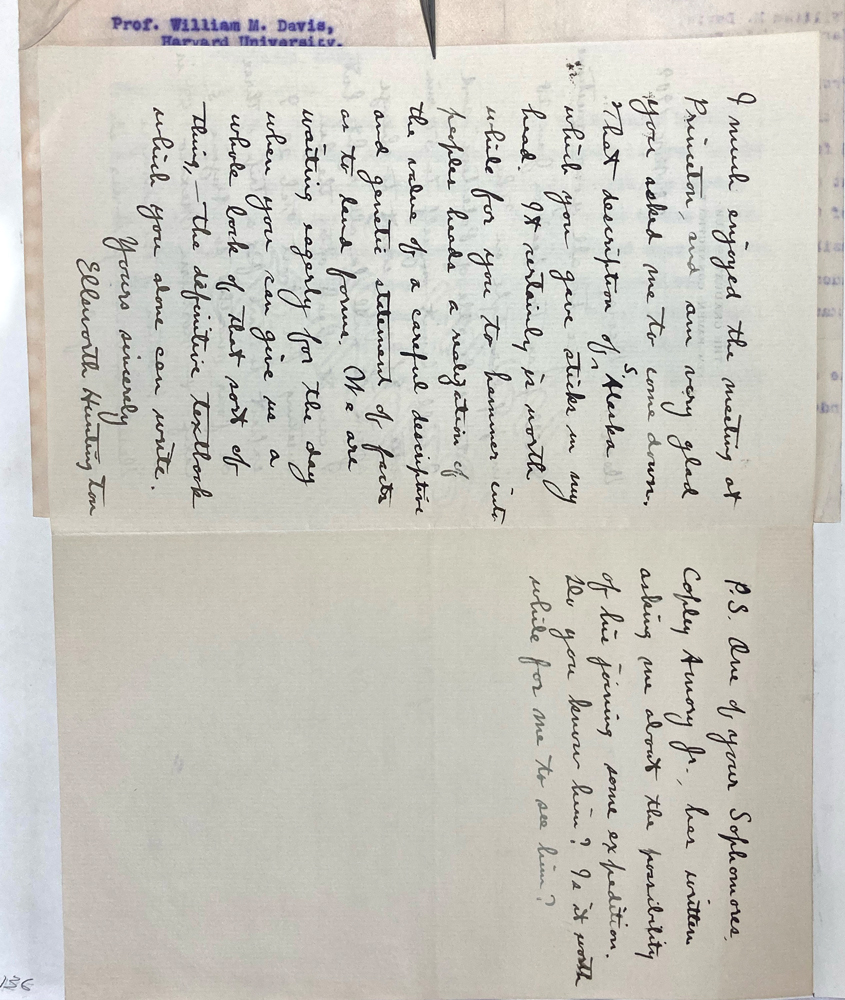 Prof. William M. Davis,
Harvard University.
I much enjoyed the meeting at
Princeton, and am very glad
you asked me to come down.
That description of S Alaska
which you gave sticks in my
head. It certainly is worth
while for you to hammer into
peoples heads a realization of
the value of a careful descriptive
and genetic statement of facts
as to land forms. We are
waiting eagerly for the day
when you can give us a
whole book of that sort of
thing, — the definitive textbook
which you alone can write.
Yours sincerely
Ellsworth Huntington
P.S. One of your Sophomores,
Copley Amory Jr., has written
asking me about the possibility
of his joining some expedition.
Do you know him? Is it worth
while for me to see him?
136